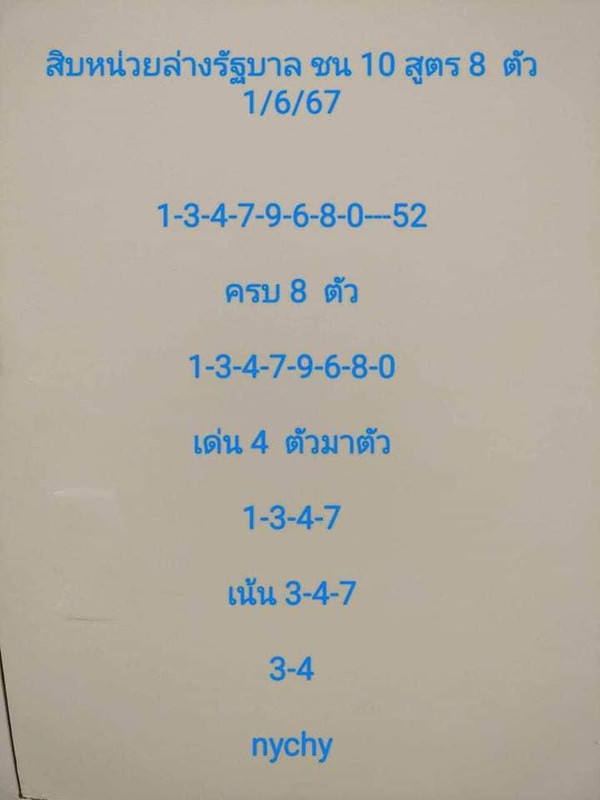 สิบหน่วยล่างรัฐบาล ชน 10 สูตร 8 ตัว
1/6/67
1-3-4-7-9-6-8-0---52
ครบ 8 ตัว
1-3-4-7-9-6-8-0
เด่น 4 ตัวมาตัว
1-3-4-7
เน้น 3-4-7
3-4
nychy